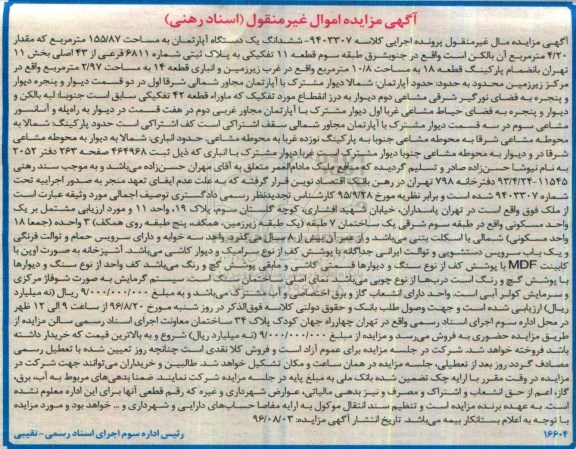 آگهی مزایده اموال غیرمنقول (اسناد رهنی)
آگهی مزایده مـال غیرمنقول پرونده اجرایی کلاسه ۹۴۰۳۳۰۷- ششدانگ یک دستگاه آپارتمان به مساحت ۱۵۵/۸۷ مترمربع که مقدار
۴/۲۰ مترمربع آن بالکن است واقع در جنوبشرق طبقه سوم قطعه ۱۱ تفکیکی به پلاک ثبتی شماره ۶۸۱۱ فرعی از ۴۳ اصلی بخش ۱۱
تهران بانضمام پارکینگ قطعه ۱۸ به مساحت ۱۰/۸ مترمربع واقع در غرب زیرزمین و انباری قطعه ۱۴ به مساحت ۲/۹۷ مترمربع واقع در
مرکز زیرزمین محدود به حدود: حدود آپارتمان: شمالا دیوار مشترک با آپارتمان مجاور شمالی شرقا اول در دو قسمت دیوار و پنجره دیوار
و پنجره به فضای نورگیر شرقی مشاعی دوم دیوار به درز انقطاع مورد تفکیک که ماوراء قطعه ۴۲ تفکیکی سابق است جنوبا: لبه بالکن و
دیوار و پنجره به فضای حیاط مشاعی غربا اول دیوار مشترک با آپارتمان مجاور غربی دوم در هفت قسمت دیوار به راه‌پله و آسانسور
مشاعی سوم در سه قسمت دیوار مشترک با آپارتمان مجاور شمالی سقف اشتراکی است کف اشتراکی است حدود پارکینگ: شمالا به
محوطه مشاعی شرقا به محوطه مشاعی جنوبا به پارکینگ نوزده غربا به محوطه مشاعی حدود انباری: شمالا به دیوار به محوطه مشاعی
شرقا در و دیوار به محوطه مشاعی جنوبا دیوار مشترک است غربا دیوار مشترک با انباری که ذیل ثبت ۴۶۴۹۶۸ صفحه ۲۶۳ دفتر ۲۰۵۲
به نام نیوشا حسن‌زاده صادر و تسلیم گردیده که منافع ملک مادام‌العمر متعلق به آقای مهران حسن‌زاده می‌باشد و به موجب سند رهنی
۱۱۵۴۵-۹۳/۴/۲۴ دفترخانه ۷۹۸ تهران در رهن بانک اقتصاد نوین قرار گرفته که به علت عدم ایفای تعهد منجر به صدور اجراییه تحت
شماره ۹۴۰۳۳۰۷ شده است و برابر نظریه مورخ ۹۵/۹/۲۸ کارشناس تجدیدنظر رسمی دادگستری توصیف اجمالی مورد وثیقه عبارت است
از ملک فوق واقع است در تهران پاسداران، خیابان شهید افشاری، کوچه گلستان سوم، پلاک ۱۹، واحد ۱۱ و مورد ارزیابی مشتمل بر یک
واحد مسکونی واقع در طبقه سوم شرقی یک ساختمان ۷ طبقه (یک طبقه زیرزمین، همکف، پنج طبقه روی همکف) ۳ واحده (جمعا ۱۸
واحد مسکونی) شمالی با اسکلت بتنی می‌باشد و از عمر آن بیش از ۸ سال می‌گذرد. واحد سه خوابه و دارای سرویس حمام و توالت فرنگی
و یک باب سرویس دستشویی و توالت ایرانی جداگانه با پوشش کف از نوع سرامیک و دیوار کاشی می‌باشد. آشپزخانه به صورت اوپن با
کابینت MDF با پوشش کف از نوع سنگ و دیوارها قسمتی کاشی و مابقی پوشش گچ و رنگ می‌باشد. کف واحد از نوع سنگ و دیوارها
با پوشش گچ و رنگ است درب‌ها از نوع چوبی می‌باشد. نمای اصلی ساختمان سنگ است. سیستم گرمایش به صورت شوفاژ مرکزی
و سرمایش کولر آبی است. واحد دارای انشعاب گاز و برق اختصاصی و آب مشترک می‌باشد. و به مبلغ ۹/۰۰۰/۰۰۰/۰۰۰ ریال (نه میلیارد
ریال) ارزیابی شده است و جهت وصول طلب بانک و حقوق دولتی کلاسه فوق‌الذکر در روز شنبه مورخ ۹۶/۸/۲۰ از ساعت ۹ الی ۱۲ ظهر
در محل اداره سوم اجرای اسناد رسمی واقع در تهران چهارراه جهان کودک پلاک ۳۴ ساختمان معاونت اجرای اسناد رسمی سالن مزایده از
طریق مزایده حضوری به فروش می‌رسد و مزایده از مبلغ ۹/۰۰۰/۰۰۰/۰۰۰ (نه میلیارد ریال) شروع و به بالاترین قیمت که خریدار داشته
باشد فروخته خواهد شد. شرکت در جلسه مزایده برای عموم آزاد است و فروش کلا نقدی است چنانچه روز تعیین شده با تعطیل رسمی
مصادف گردد روز بعد از تعطیلی، جلسه مزایده در همان ساعت و مکان تشکیل خواهد شد. طالبین و خریداران می‌توانند جهت شرکت در
مزایده در وقت مقرر با ارایه چک تضمین شده بانک ملی به مبلغ پایه در جلسه مزایده شرکت نمایند. ضمنا بدهی‌های مربوط به آب، برق،
گاز، اعم از حق انشعاب و اشتراک و مصرف و نیز بدهی مالیاتی، عوارض شهرداری و غیره که رقم قطعی آنها برای این اداره معلوم نشده
است. به عهده برنده مزایده است و تنظیم سند انتقال موکول به ارایه مفاصا حساب‌های دارایی و شهرداری و ... خواهد بود و مورد مزایده
با توجه به اعلام بستانکار بیمه می‌باشد. تاریخ انتشار آگهی مزایده: ۹۶/۰۸/۰۳
۱۶۶۰۴ رئیس اداره سوم اجرای اسناد رسمی - نقیبی